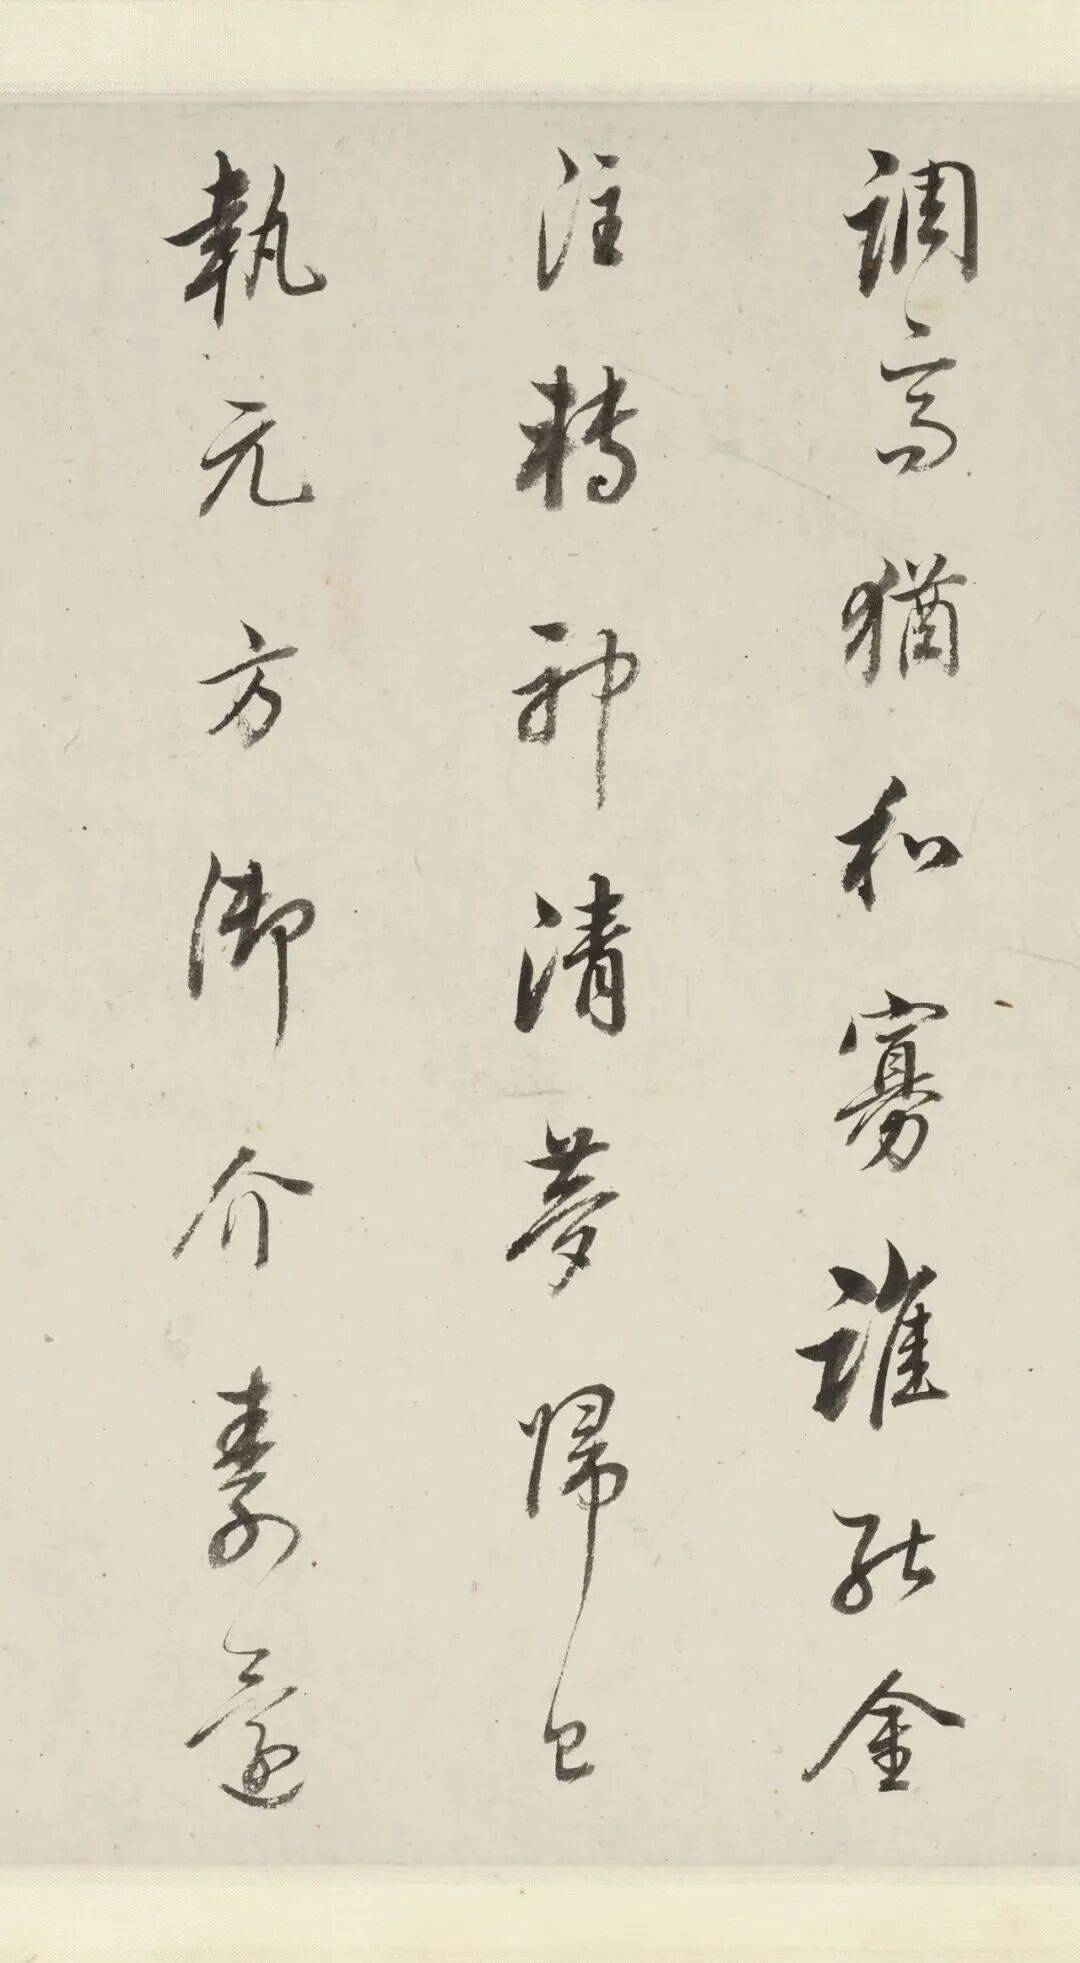 調高猶和寡誰能金
注轉神清夢歸己
執元方御介素還